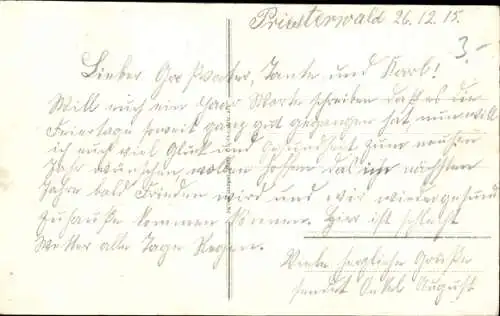 Priesterwald 26.12.15.
3.-
Lieber Großvater, Tante und Karl!
Will euch ein paar Worte schreiben daß es die
Feiertage soweit ganz gut gegangen hat nun will
ich euch viel Glück und Gesundheit zum neuen
Jahr wünschen wollen hoffen daß im nächsten
Jahre bald Frieden wird und wir wieder gesund
zuhause kommen können. Hier ist schlecht
Wetter alle Tage Regen.
Viele herzliche Grüße
sendet Onkel August